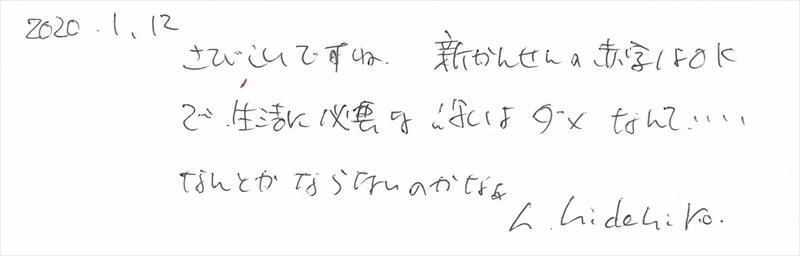 2020.1,12
さびしいですね. 新かんせんの赤字はOK
で 生活に必要な はダメ なんて.....
なんとかならないのかなぁ
h.hidehiro.